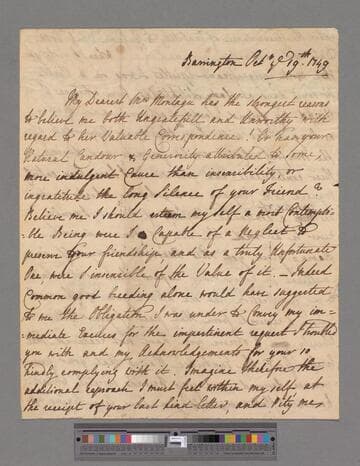 Barrington Oct.r ye 19.th 1749
My Dearest Mrs Montagu has the strongest reasons
to believe me both Ungratefull and Unworthy with
regard to her Valuable Correspondence! Or has your
Natural Candour & Generosity attributed to some
more indulgent Cause than insensibility, or
ingratitude the long Silence of your Friend?
Believe me I should esteem my self a most Contempti-
=ble Being were I Capable of a Neglect to
preserve your friendship, and as a truly Unfortunate
One were I insensible of the Value of it. _ Indeed
Common good breeding alone would have suggested
to me the Obligation I was under to Convey my im=
=mediate Excuses for the impertinent request I troubled
you with and my Acknowledgements for your so
kindly complying with it. Imagine therefore the
additional reproach I must feel within my self at
the receipt of your last kind letter, and Pity me